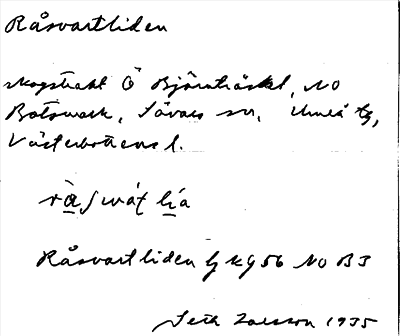 Råsvartliden
Skogstrakt Ö Björnträsket, NO
Botsmark, Sävars sn, Umeå tg,
Västerbottens l.
Råsvartliden bj kg 56 NO B3
Seth Larsson 1935